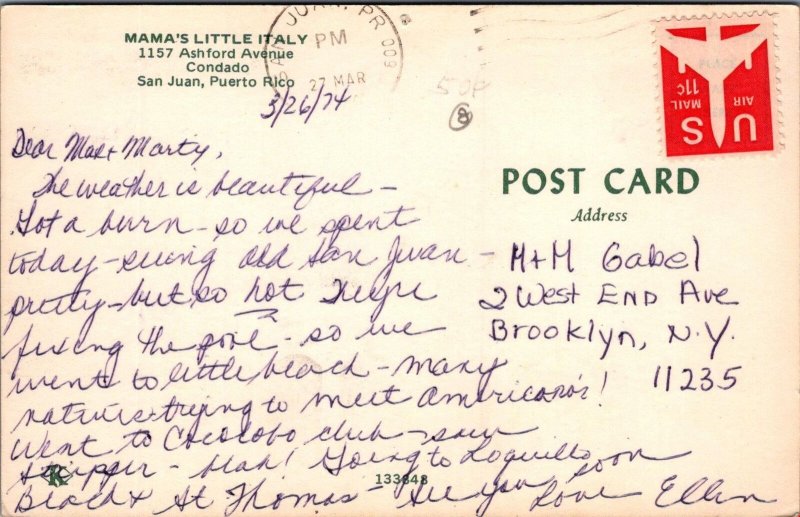 MAMA'S LITTLE ITALY
1157 Ashford Avenue
Condado
San Juan, Puerto Rico
SAN JUAN, PR 009
PM
27 MAR
3/26/74
50P
8
US
AIR
MAIL
11c
POST CARD
Address
M+M Gabel
2 West END Ave
Brooklyn, N.Y.
11235
Dear Max + Marty,
The weather is beautiful -
Got a burn - so we spent
today - seeing old San Juan -
pretty - but so hot They're
fixing the pool - so we
went to little beach - many
natives trying to meet Americano's!
Went to Cocolobo club - saw
stripper - blah! Going to Loquillo
Beach + St Thomas soon
See you Love Ellen
133848
K